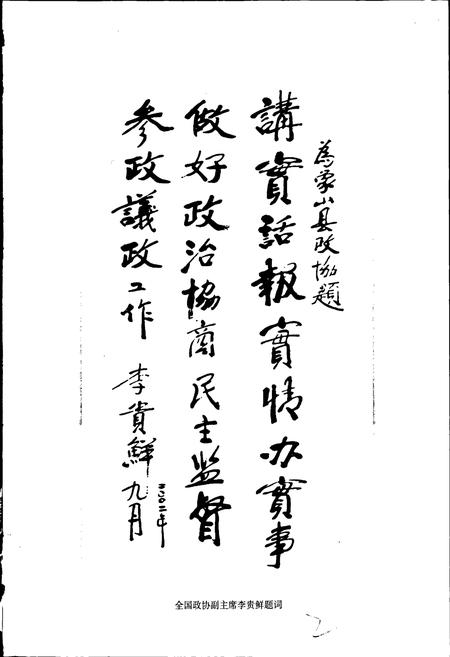 為象山县政协題
講實話報實情办實事
做好政治協商民主监督
参政議政工作
李贵鮮
二〇〇二年
九月
全国政协副主席李贵鲜题词